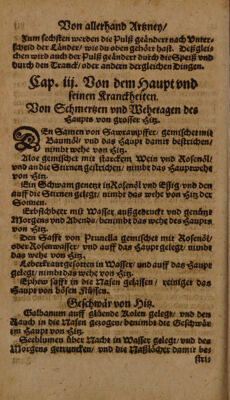 Von allerhand Artzney/
Zum sechsten werden die Pulß geändert nach Unter-
scheid der Länder/ wie du oben gehört hast. Deßglei-
chen wird auch der Pulß geändert durch die Speiß vnd
durch den Tranck/ oder andern dergleichen Dingen.
Cap. iij. Von dem Haupt vnd
seinen Kranckheiten.
Von Schmertzen vnd Wehetagen des
Haupts von grosser Hitz.
DEn Samen von Sawrampffer/ gemischet mit
Baumöl/ vnd das Haupt damit bestrichen/
nimbt wehe von Hitz.
Aloe gemischet mit starckem Wein vnd Rosenöl/
vnd an die Stirnen gestrichen/ nimbt das Hauptwehe
von Hitz.
Ein Schwam genetzt in Rosenöl vnd Essig/ vnd den
auff die Stirnen gelegt/ nimbt das wehe von Hitz der
Sonnen.
Erbschhertz mit Wasser vnd genützt
Morgens vnd Abends/ benimbt das wehe des Haupts
von Hitz.
Den Safft von Prunella gemischet mit Rosenöl/
oder Rosenwasser/ vnd auff das Haupt gelegt/ nimbt
das wehe von Hitz.
Leberkraut gesotten in Wasser/ vnd auff das Haupt
gelegt/ nimbt das wehe von Hitz.
Ephew safft in die Nasen gelassen/ reiniget das
Haupt von bösen Flüssen.
Geschwär von Hitz.
Galbanum auff glüende Kolen gelegt/ vnd den
Rauch in die Nasen gezogen/ benimbt die Geschwär
im Haupt von Hitz.
Seeblumen über Nacht in Wasser gelegt/ vnd des
Morgens getruncken/ vnd die Naßlöcher damit be-
stris